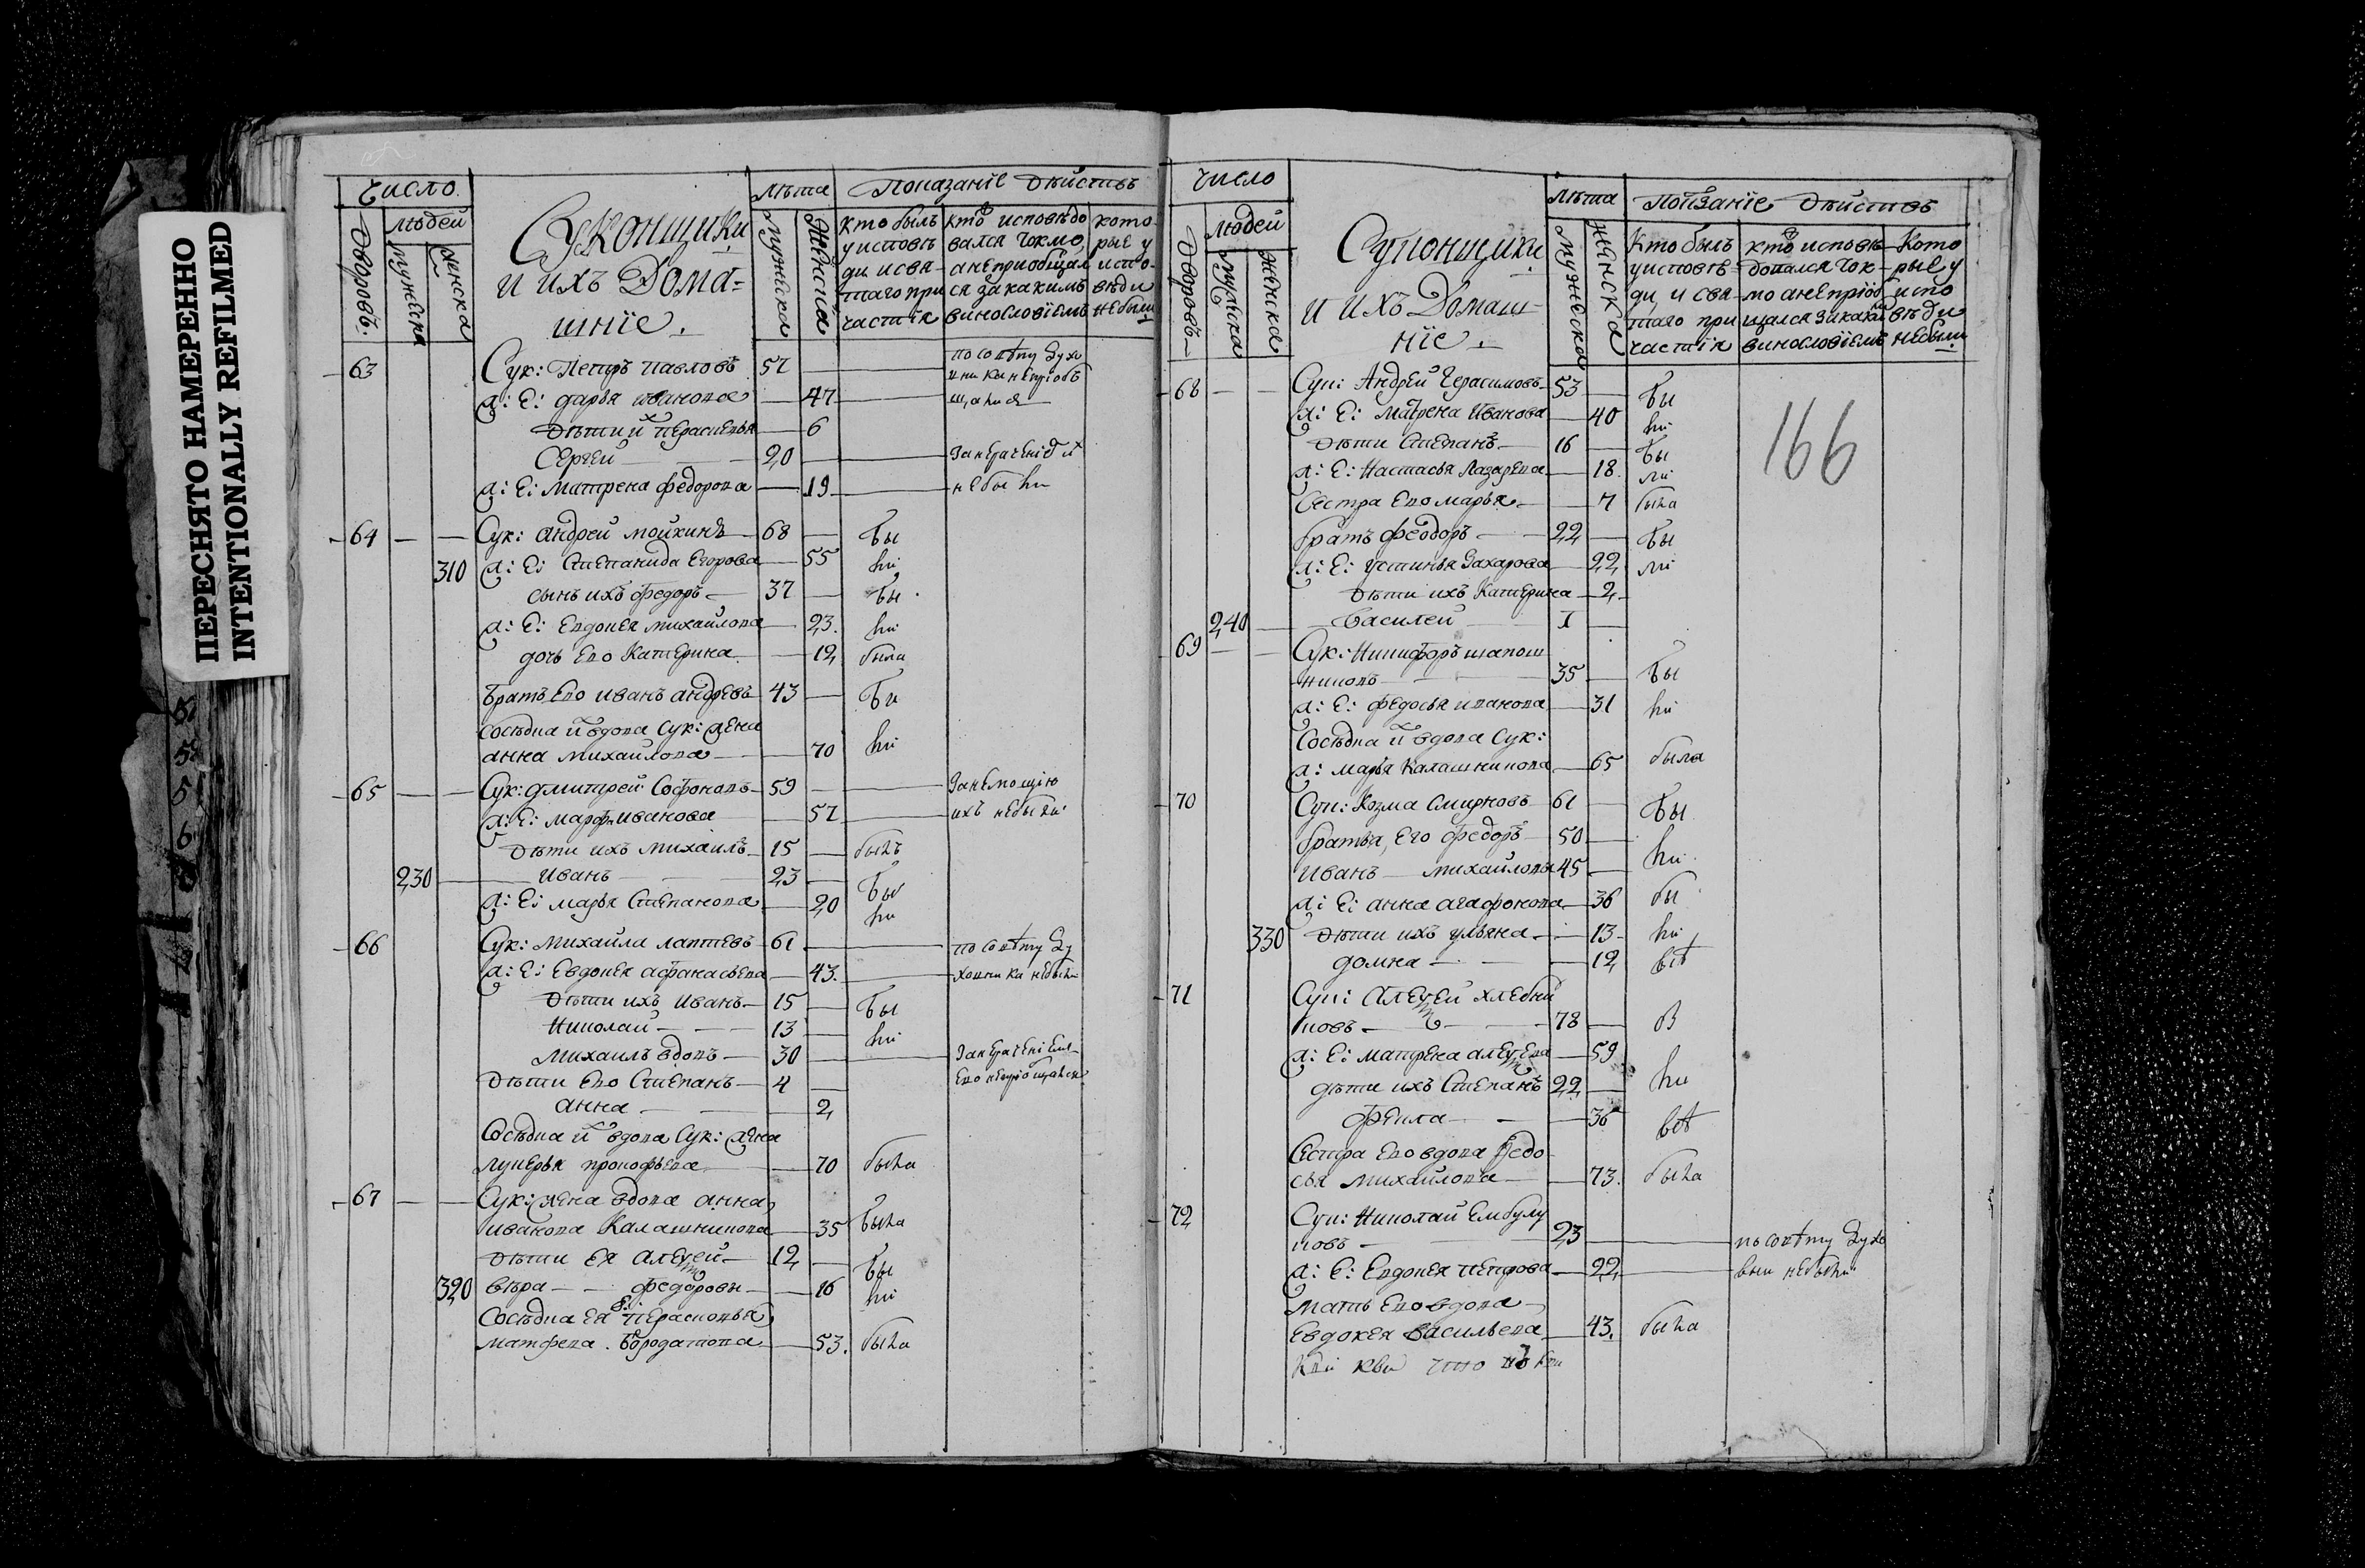 ПЕРЕСНЯТО НАМЕРЕННО
INTENTIONALLY REFILMED
число
дворовъ
людей
мужеска
женска
Суконщики
и ихъ Дома=
шнїе.
лѣта
мужеска
женска
Показанїе дѣйствъ
кто былъ
у исповѣ
ди и свя-
таго при
частїя
кто исповѣдо
вался токмо,
а не прїобщал
ся за какимъ
винословїемъ
кото
рые у
испо-
вѣди
небыли
63 Сук: Петръ павловъ 57 по совѣту духо
ж: Е: дарья иванова 47
дѣти их Параскевья 6
Сергей 20
ж: Е: Матрена федорова 19 небыли
64 Сук: андрей мойкинъ 68 бы
310 ж: Е: Степанида Егорова 55 ли
сынъ ихъ федоръ 37 бы
ж: Е: Евдокея михайлова 23. ли
дочь Ево Катерина 12 была
братъ Ево иванъ андреевъ 43 бы
Сосѣдка их вдова Сук: жена
анна михайлова 70 ли
65 Сук: дмитрей Софоновъ 59 за немощїю
ж: Е: марфа иванова 57 ихъ небыли
дѣти ихъ михаилъ 15 былъ
230 иванъ 23 бы
ж: Е: марья Степанова 20 ли
66 Сук: михайла лаптевъ 61 по совѣту ду
ж: Е: Евдокея афанасьева 43. ховника небыли
дѣти ихъ иванъ 15 бы
николай 13 ли
михаилъ вдовъ 30
дѣти Ево Степанъ 4
анна 2
Сосѣдка их вдова Сук: жена
лукерья прокофьева 70 была
67 Сук: жена вдова анна
иванова Калашникова 35 была
дѣти Ея алексей 12 бы
320 вѣра федоровы 16 ли
Сосѣдка Ея Парасковья
матфева. бородатова 53. была
число
дворовъ
людей
мужеска
женска
Суконщики
и ихъ Домаш-
нїе.
лѣта
мужеска
женска
Показанїе дѣйствъ
Кто былъ
у исповѣ-
ди и свя-
таго при
частїя
кто исповѣ
довался ток-
мо а не прїоб
щался за каким
винословїемъ
Кото
рые у
испо
вѣди
небыли
166
68 Сук: Андрей Герасимовъ 53 бы
ж: Е: матрена иванова 40 ли
дѣти Степанъ 16 бы
ж: Е: Настасья Лазарева 18. ли
Сестра Ево марья 7 была
братъ феодоръ 22 бы
ж: Е: устинья Захарова 22 ли
дѣти ихъ Катерина 2
240 василей 1
69 Сук: Никифоръ шапош
никовъ 35 бы
ж: Е: федосья иванова 31 ли
Сосѣдка их вдова Сук:
ж: марья Калашникова 65 была
70 Сук: Козма Смирновъ 61 бы
братья, Его федоръ 50
иванъ михайловы 45 ли
ж: Е: анна агафонова 36 бы
330 дѣти ихъ ульяна 13 ли
домна 12 всѣ
71 Сук: алексей хлебни
ковъ 78 б
ж: Е: матрена алексева 59 ли
дѣти ихъ Степанъ 22
фекла 36 всѣ
Сестра Ево вдова федо
сья михайлова 73. была
72 Сук: Николай Ембулу
ковъ 23 по совѣту духо
ж: Е: Евдокея петрова 22 небыли
мать Ево вдова
Евдокея васильева 43. была